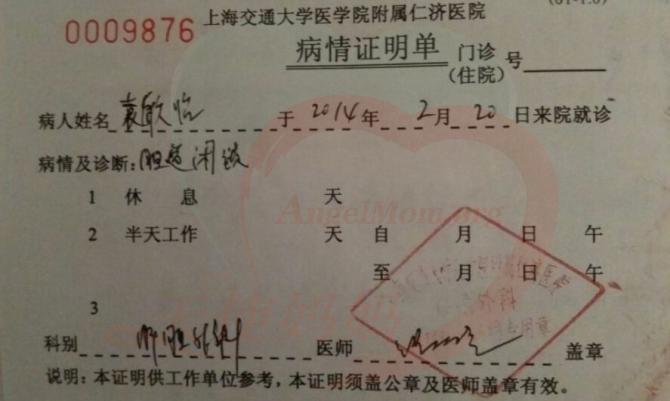 0009876
上海交通大学医学院附属仁济医院
病情证明单 门诊(住院)号
病人姓名 袁歆怡 于 2014 年 2 月 20 日来院就诊
病情及诊断：胆道闭锁
1 休 息 天
2 半天工作 天 自 月 日 午
至 月 日 午
3
AngelMom.org
天使妈妈
科别 肝胆外科 医师 盖章
说明：本证明供工作单位参考，本证明须盖公章及医师盖章有效。